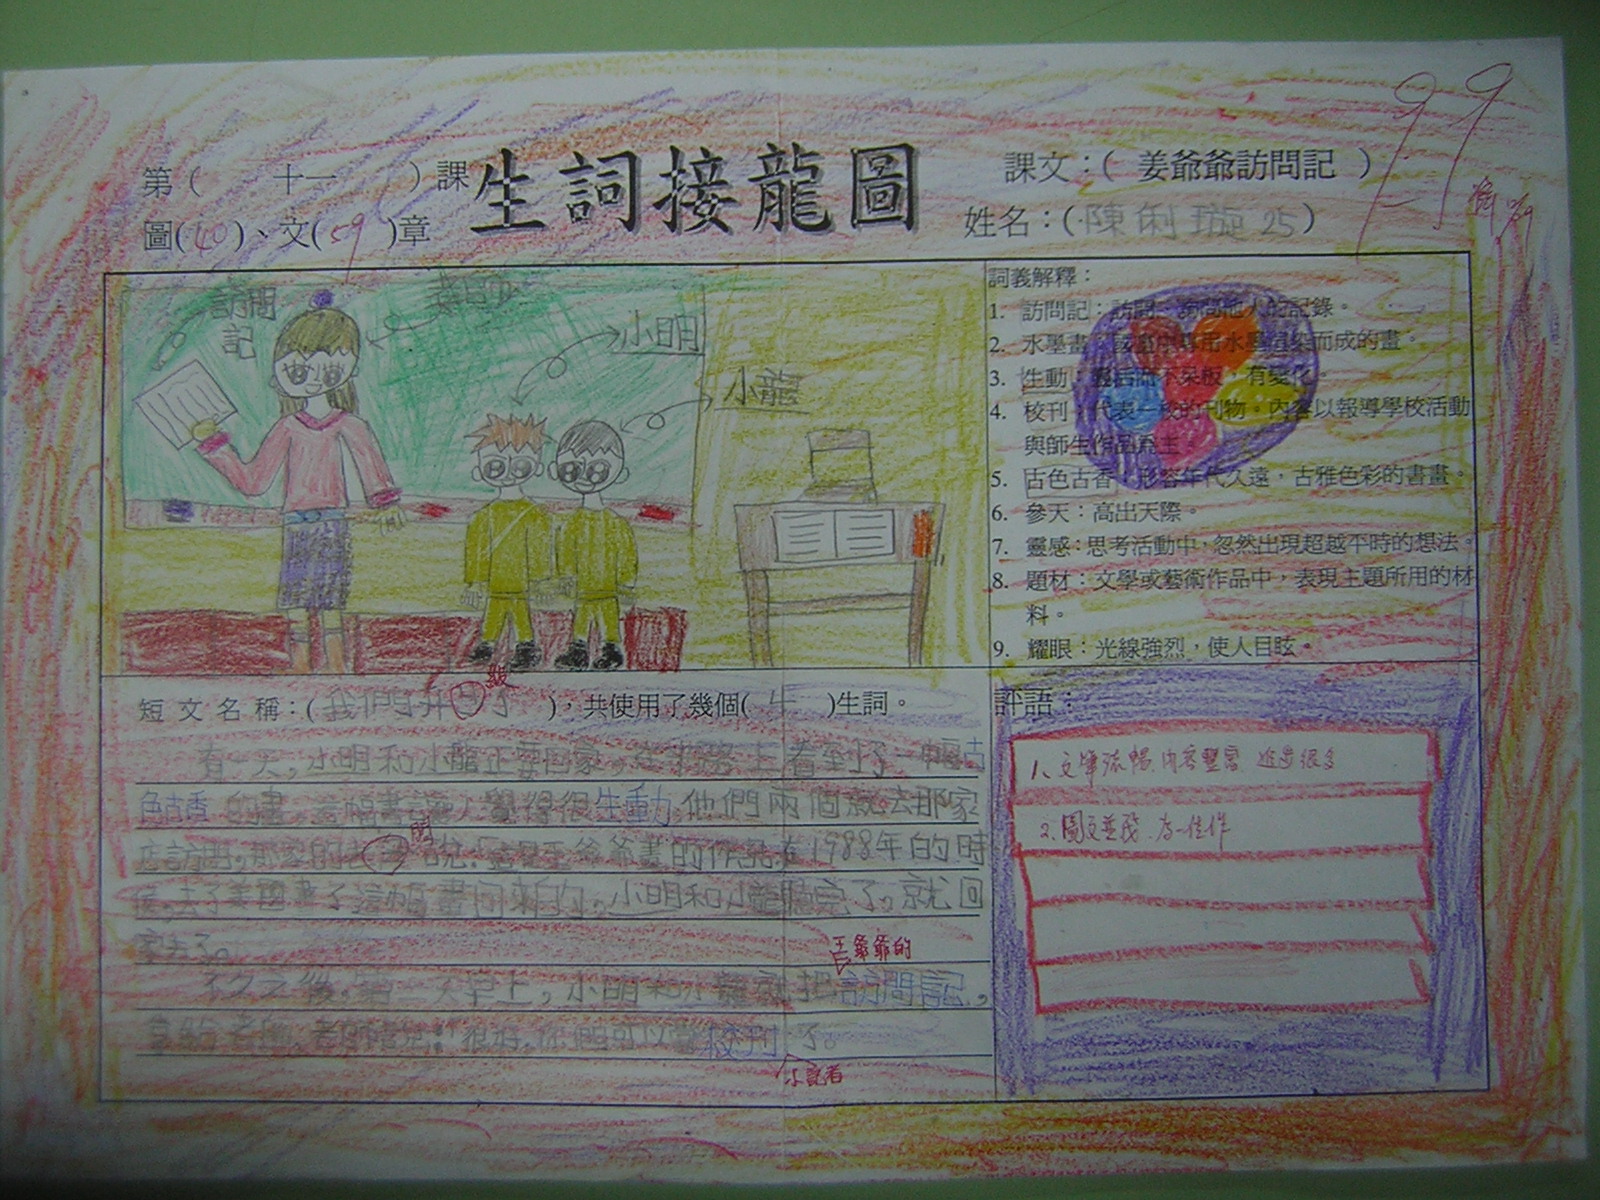 第（ 十一 ）課 生詞接龍圖 課文：( 姜爺爺訪問記 )
圖(40)、文(59)章 姓名：(陳俐璇25)
99
訪問記
老師
小明
小龍
詞義解釋：
1. 訪問記：訪問、詢問他人的記錄。
2. 水墨畫：
3. 生動：靈活而不呆板，有變化。
4. 校刊：代表一校的刊物。內容以報導學校活動
與師生作品為主。
5. 古色古香：形容年代久遠，古雅色彩的書畫。
6. 參天：高出天際。
7. 靈感：思考活動中，忽然出現超越平時的想法。
8. 題材：文學或藝術作品中，表現主題所用的材
料。
9. 耀眼：光線強烈，使人目眩。
級
短文名稱：(我們升 了 )，共使用了幾個( 4 )生詞。
有一天，小明和小龍正要回家，在半路上看到了一幅古
色古香的畫，這幅畫讓人覺得很生動，他們兩個就去那家
店訪問，那家的 說：「這是王爺爺畫的作品，在1988年的時
候，去了美國畫了這幅畫回來的。」小明和小龍 完了。就回
家去了。
王爺爺的
不久之後，第二天早上，小明和小龍就把訪問記，
拿給老師，老師 說：「很好，你們可以當校刊 了。
小記者
評語：
1、文筆流暢、內容豐富、進步很多
2、圖文並茂、為一佳作